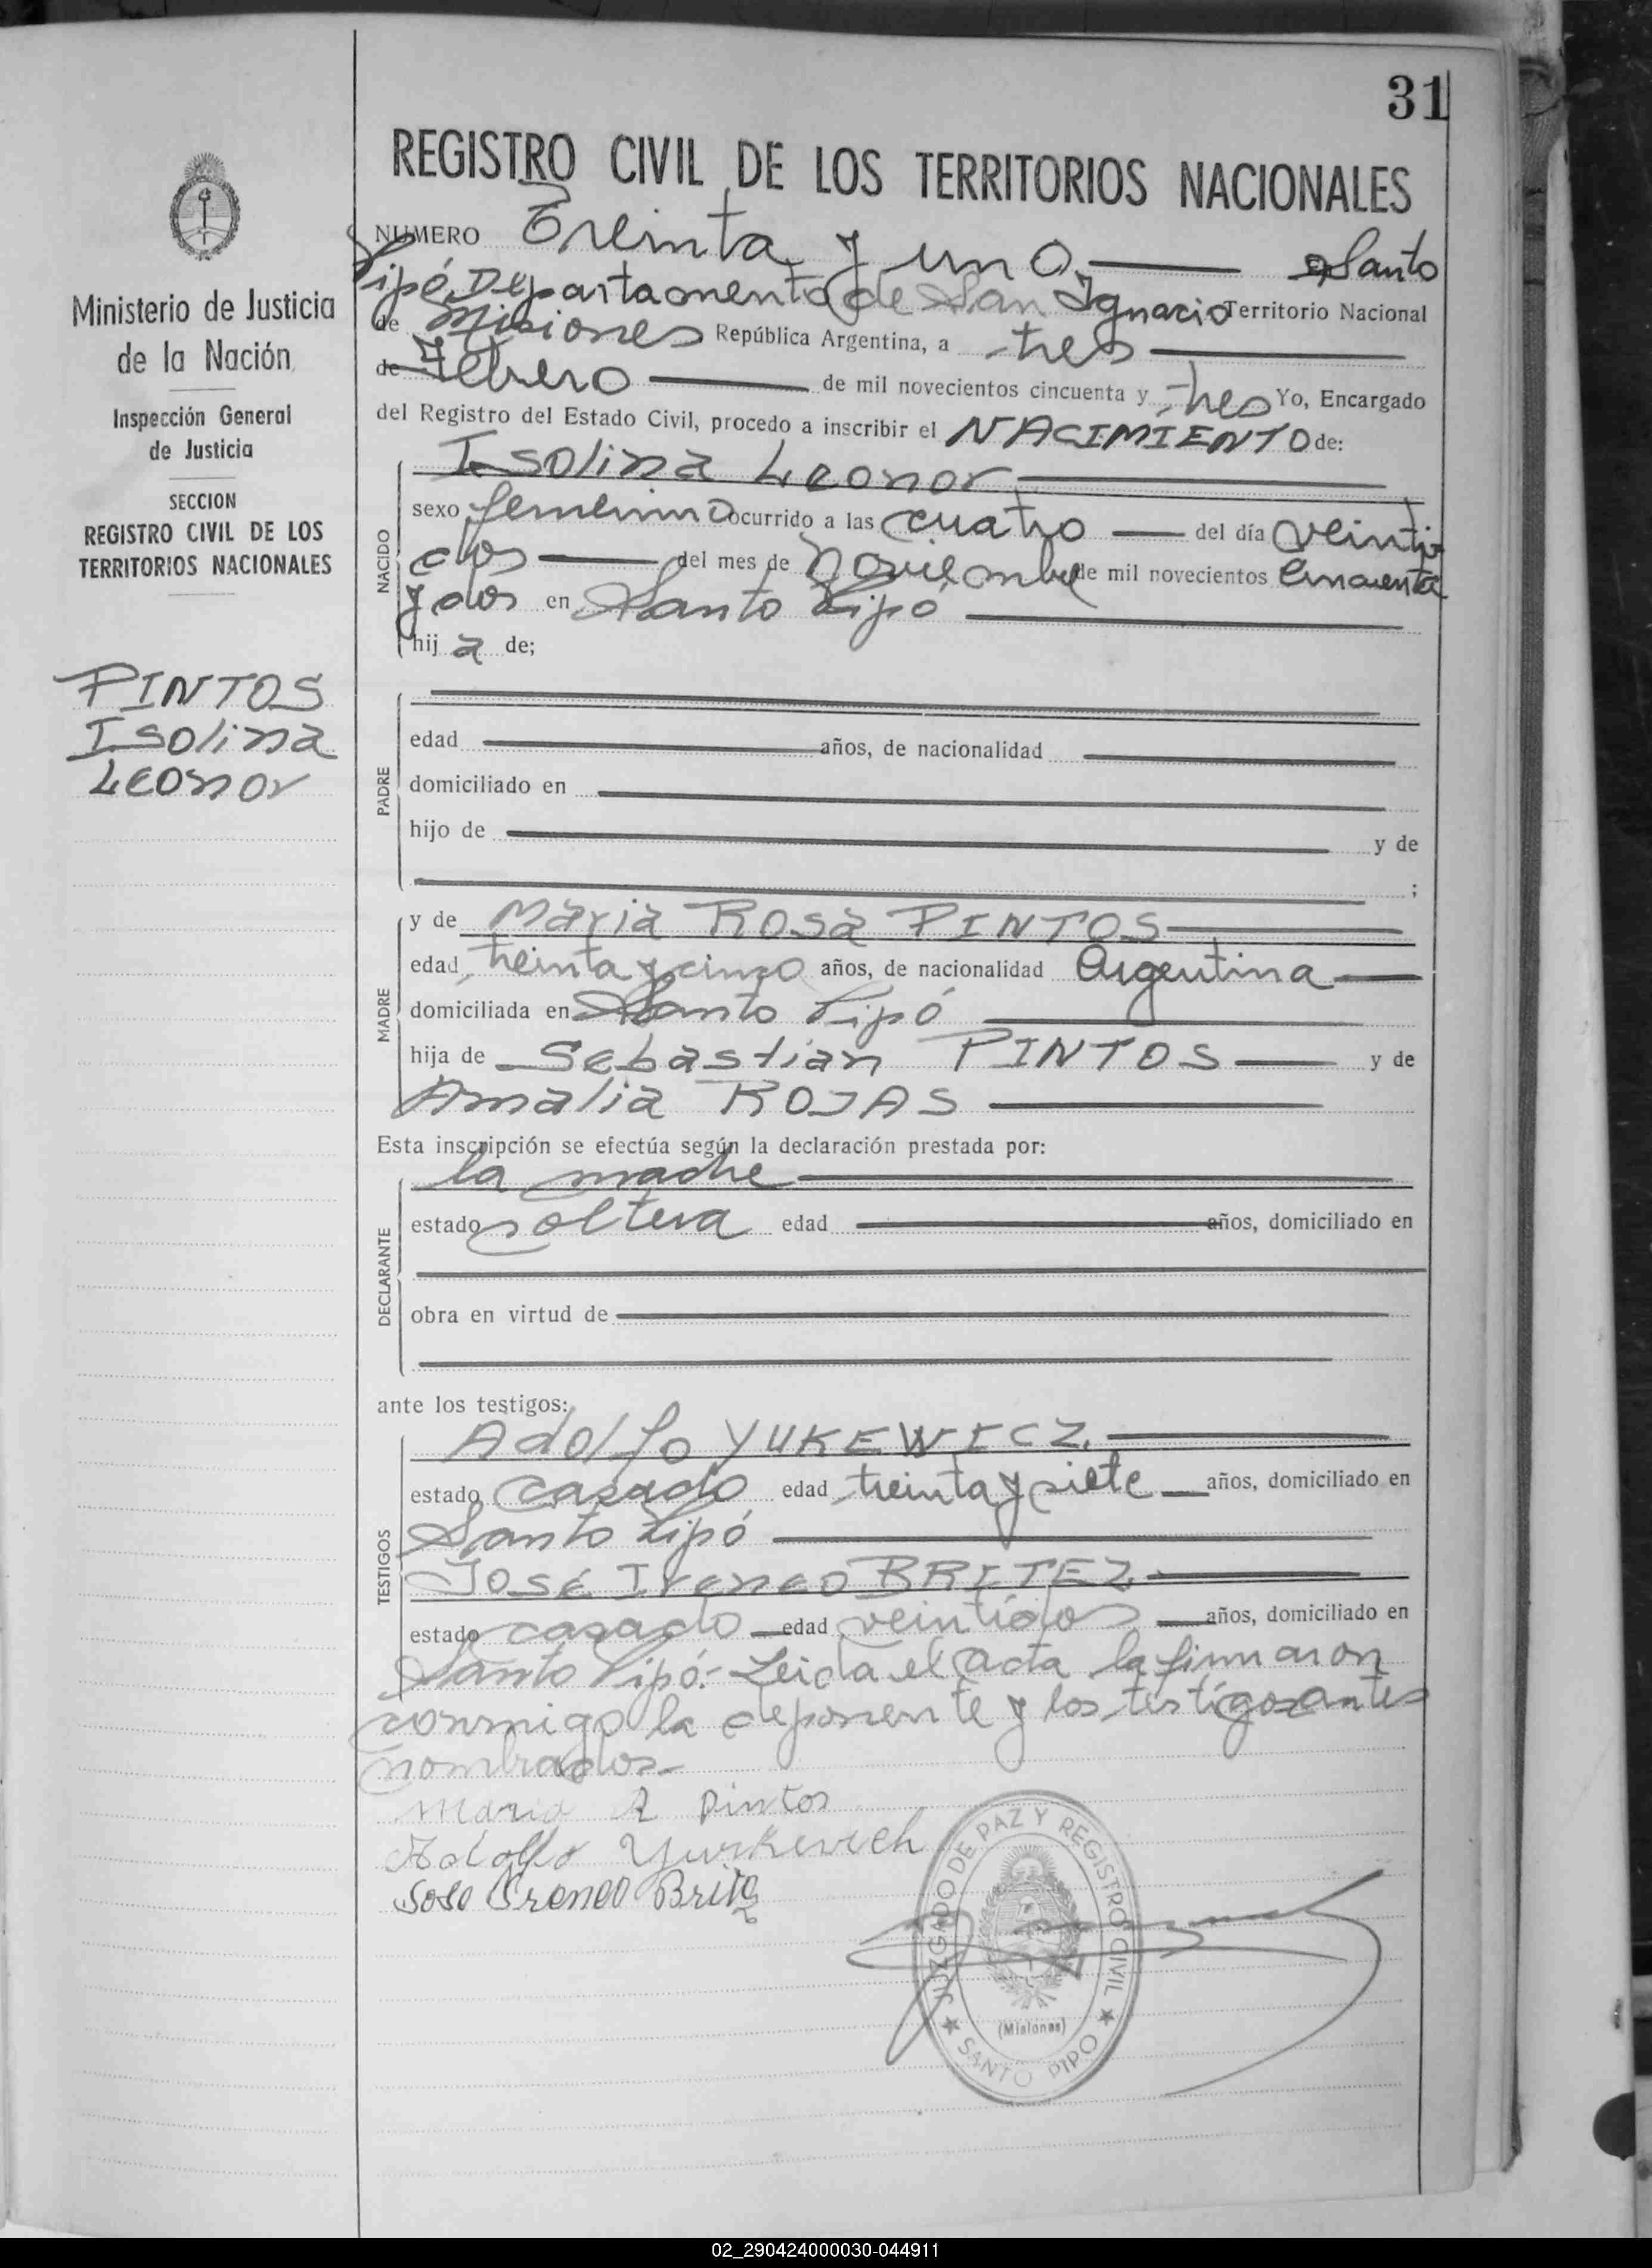 31
REGISTRO CIVIL DE LOS TERRITORIOS NACIONALES
Ministerio de Justicia
de la Nación
Inspección General
de Justicia
SECCION
REGISTRO CIVIL DE LOS
TERRITORIOS NACIONALES
PINTOS
Isolina
Leonor
NUMERO Treinta y uno Santo
Pipó Departamento de San Ignacio Territorio Nacional
de Misiones República Argentina, a tres
de Febrero de mil novecientos cincuenta y tres Yo, Encargado
del Registro del Estado Civil, procedo a inscribir el NACIMIENTO de:
NACIDO
Isolina Leonor
sexo femenino ocurrido a las cuatro del día veinti
dos del mes de Noviembre de mil novecientos cincuenta
y dos en Santo Pipó
hij a de;
PADRE
edad años, de nacionalidad
domiciliado en
hijo de y de
;
MADRE
y de Maria Rosa PINTOS
edad treinta y cinco años, de nacionalidad Argentina
domiciliada en Santo Pipó
hija de Sebastian PINTOS y de
Amalia ROJAS
Esta inscripción se efectúa según la declaración prestada por:
DECLARANTE
la madre
estado soltera edad años, domiciliado en
obra en virtud de
ante los testigos:
TESTIGOS
Adolfo YUKEWICZ
estado casado edad treinta y siete años, domiciliado en
Santo Pipó
José Ireneo BRITEZ
estado casado edad veintidos años, domiciliado en
Santo Pipó.- Leida el acta la firmaron
conmigo la deponente y los testigos antes
nombrados.-
Maria R Pintos
Adolfo Yurkevich
Jose Ireneo Britez
JUZGADO DE PAZ Y REGISTRO CIVIL
(Misiones)
★ SANTO PIPO ★
02_290424000030-044911